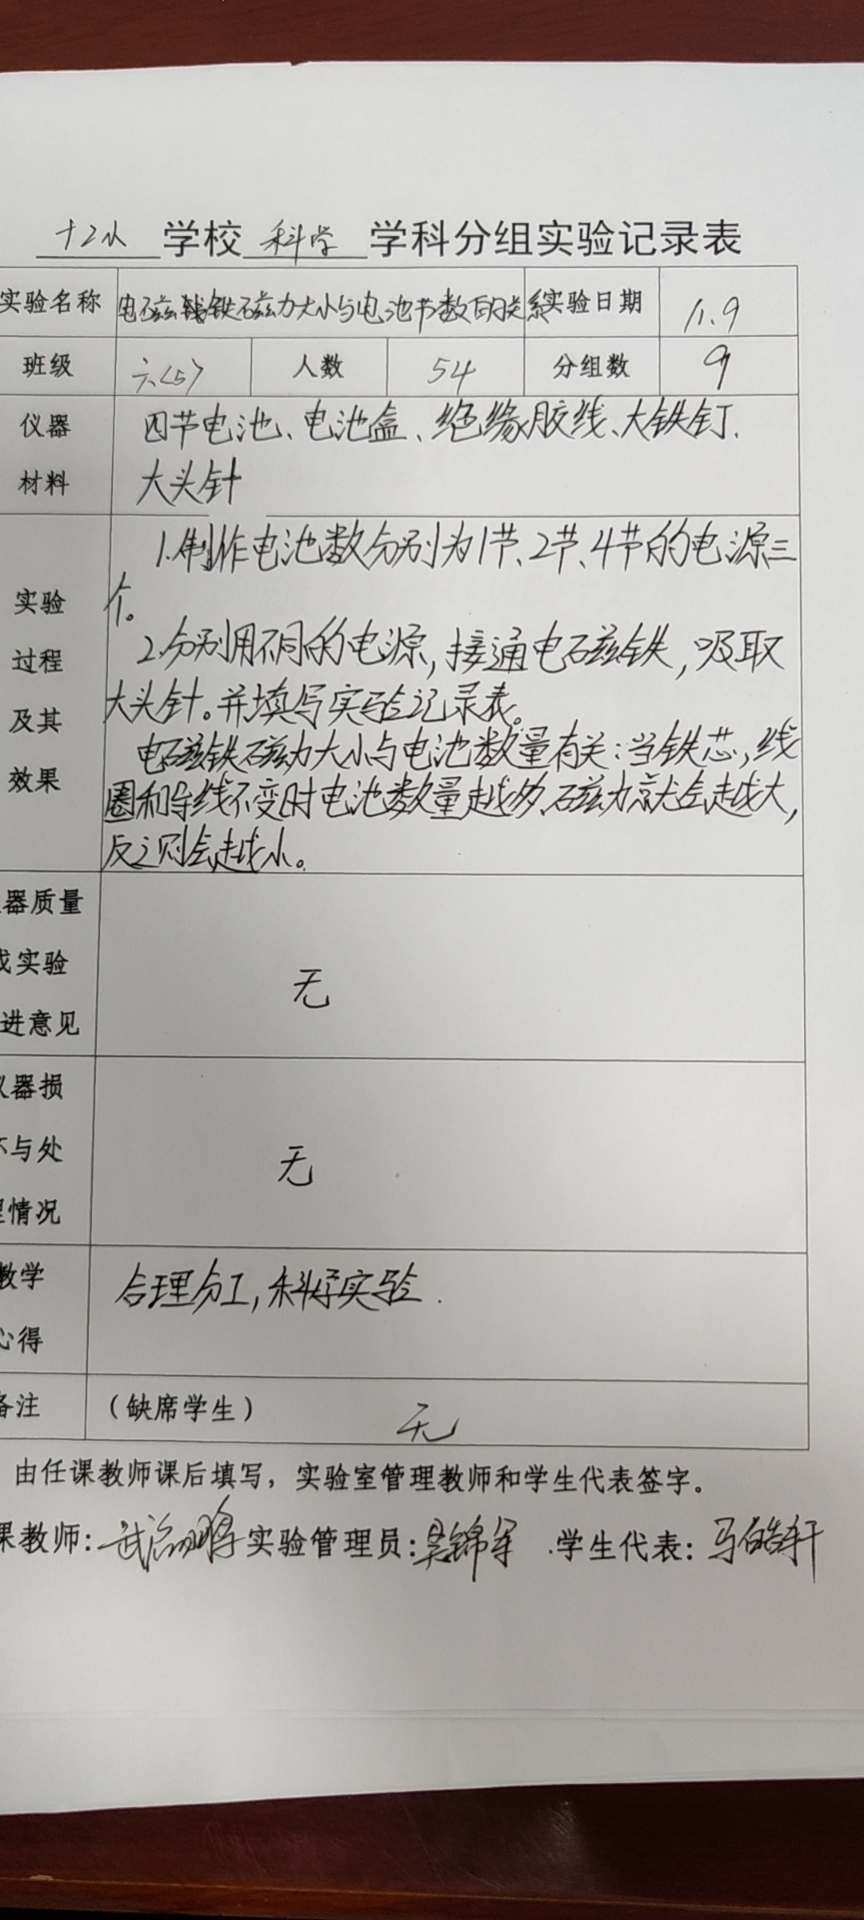 十二小 学校 科学 学科分组实验记录表
实验名称 电磁铁磁力大小与电池节数的关系 实验日期 11.9
班级 六<5> 人数 54 分组数 9
仪器 四节电池、电池盒、绝缘胶线、大铁钉、
材料 大头针
1.制作电池数分别为1节、2节、4节的电源三
实验 个。
过程 2.分别用不同的电源,接通电磁铁,吸取
及其 大头针。并填写实验记录表。
效果 电磁铁磁力大小与电池数量有关:当铁芯,线
圈和导线不变时电池数量越多,磁力就会越大,
反之则会越小。
器质量
实验 无
进意见
器损
与处 无
情况
教学 合理分工,科学实验.
心得
备注 (缺席学生) 无
由任课教师课后填写,实验室管理教师和学生代表签字。
课教师: 实验管理员:吴锦军 学生代表:马皓轩